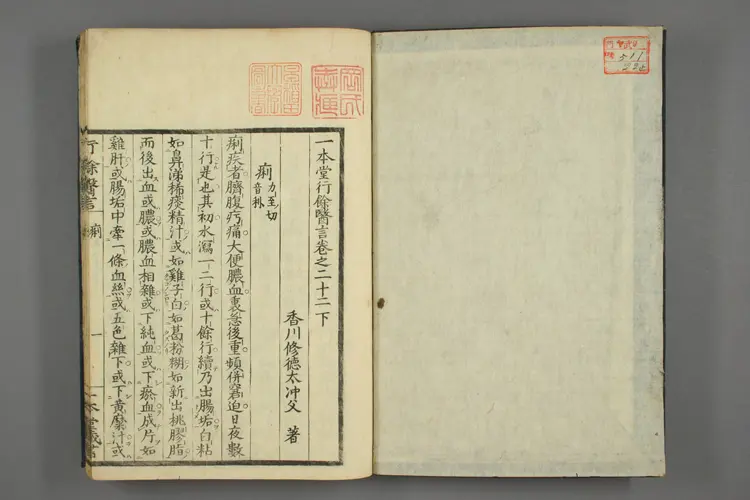 一本堂行餘醫言卷之二十二下
香川修德太冲父 著
痢 力至切
音利
痢疾者臍腹疞痛大便膿血裏急後重頻併窘迫日夜數
十行是也其初水瀉一二行或十餘行續乃出腸垢白粘
如鼻涕稀痰精汁或如雞子白如葛粉糊如新出桃膠脂
而後出血或膿或膿血相雜或下純血或下瘀血成片如
雞肝或腸垢中牽一條血絲或五色雜下或下黃糜汁或
行餘醫言 痢 一
511